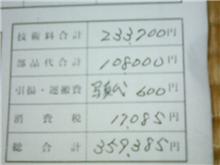 技術料合計 233,700円
部品代合計 108,000円
引揚・運搬費 600円
消費税 17,085円
総合計 359,385円